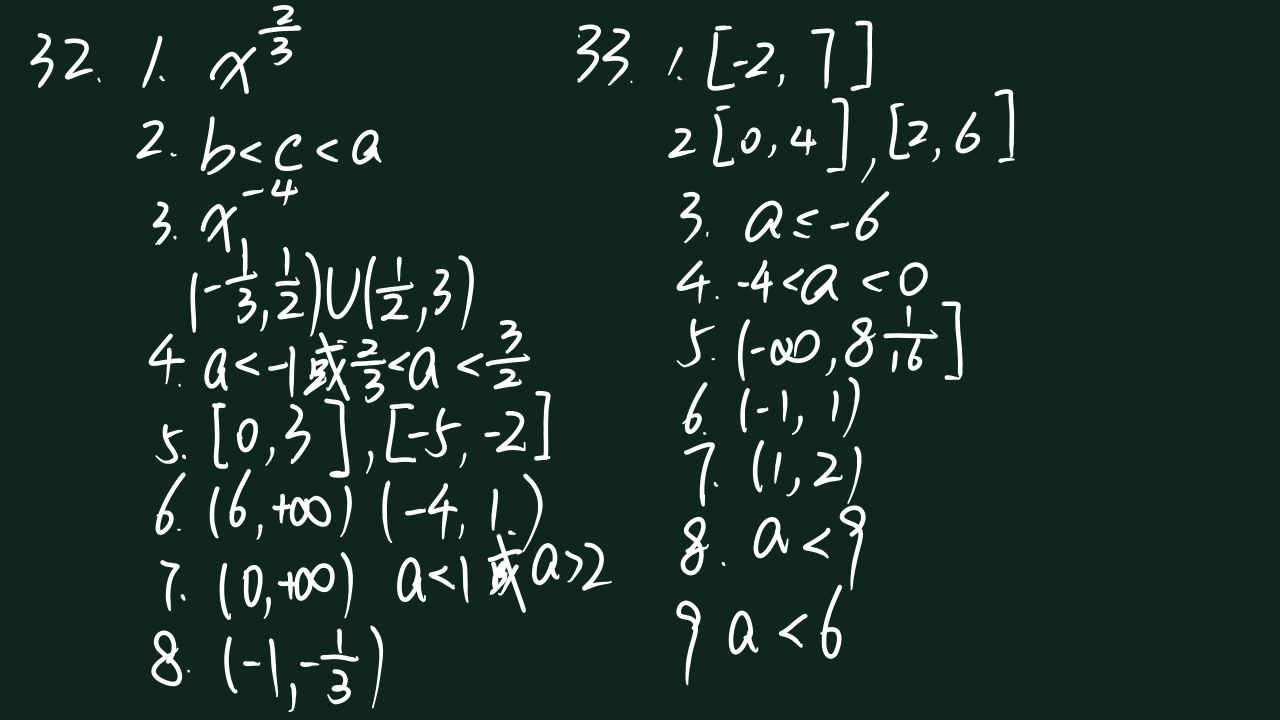 32. 1. x^{\frac{2}{3}}
2. b<c<a
3. x^{-4}
(-\frac{1}{3}, \frac{1}{2})∪(\frac{1}{2}, 3)
4. a<-1或\frac{2}{3}<a<\frac{3}{2}
5. [0,3], [-5,-2]
6. (6,+∞) (-4,1.)
7. (0,+∞) a<1或a>2
8. (-1,-\frac{1}{3})
33. 1. [-2, 7]
2 [0,4], [2,6]
3. a≤-6
4. -4<a<0
5. (-∞, 8\frac{1}{16}]
6. (-1, 1)
7. (1, 2)
8. a<9
9 a<6